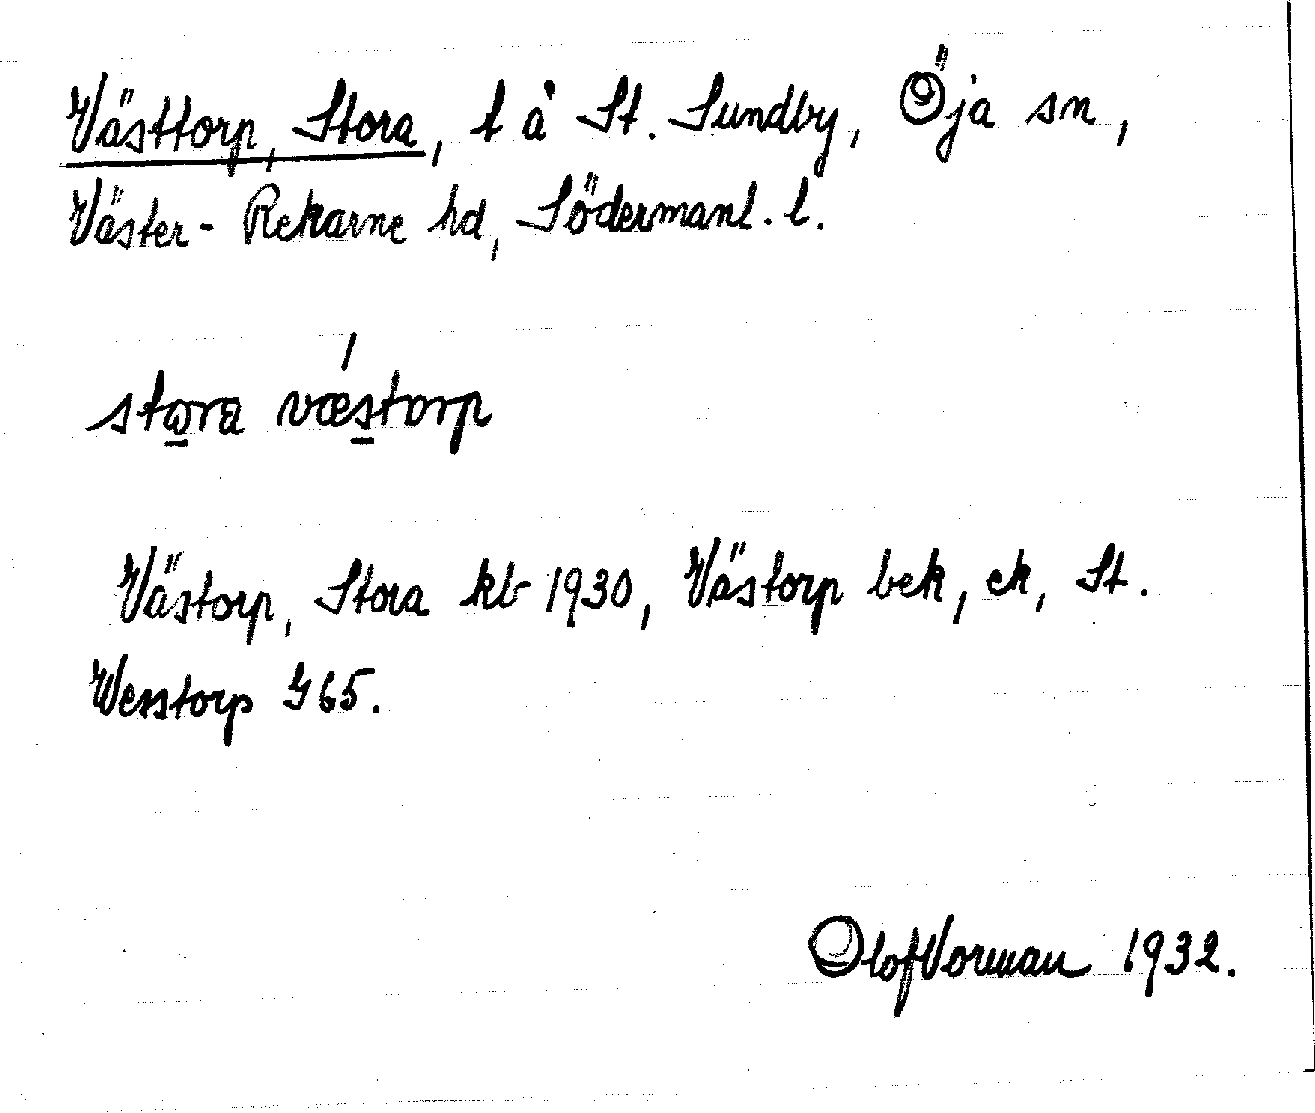 Västtorp, Stora, t å St. Sundby, Öja sn,
Väster-Rekarne hd, Södermanl. l.
stωra væstorp
Västorp, Stora kb 1930, Västorp bek, ek, St.
Wesstorp G 65.
Olof Vorman 1932.